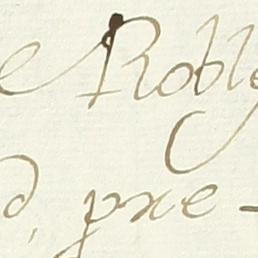 e Roble
d, pre-